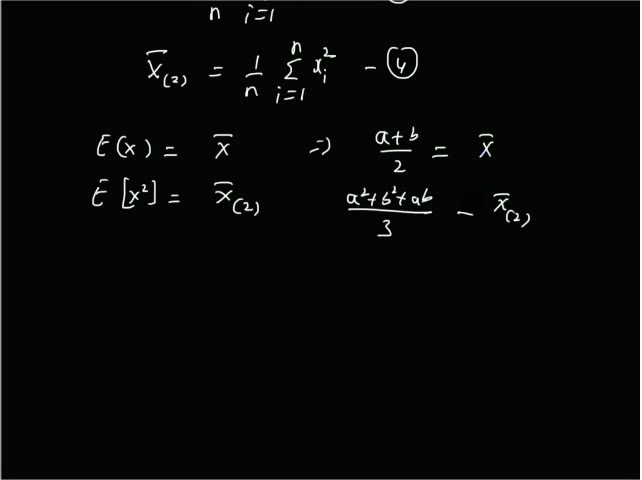 n i=1
X̄(2) = 1/n Σ_{i=1}^{n} x_i^2 - (4)
E(x) = x̄ ⇒ a+b/2 = x̄
E[x^2] = x̄(2) a^2+b^2+ab/3 - x̄(2)